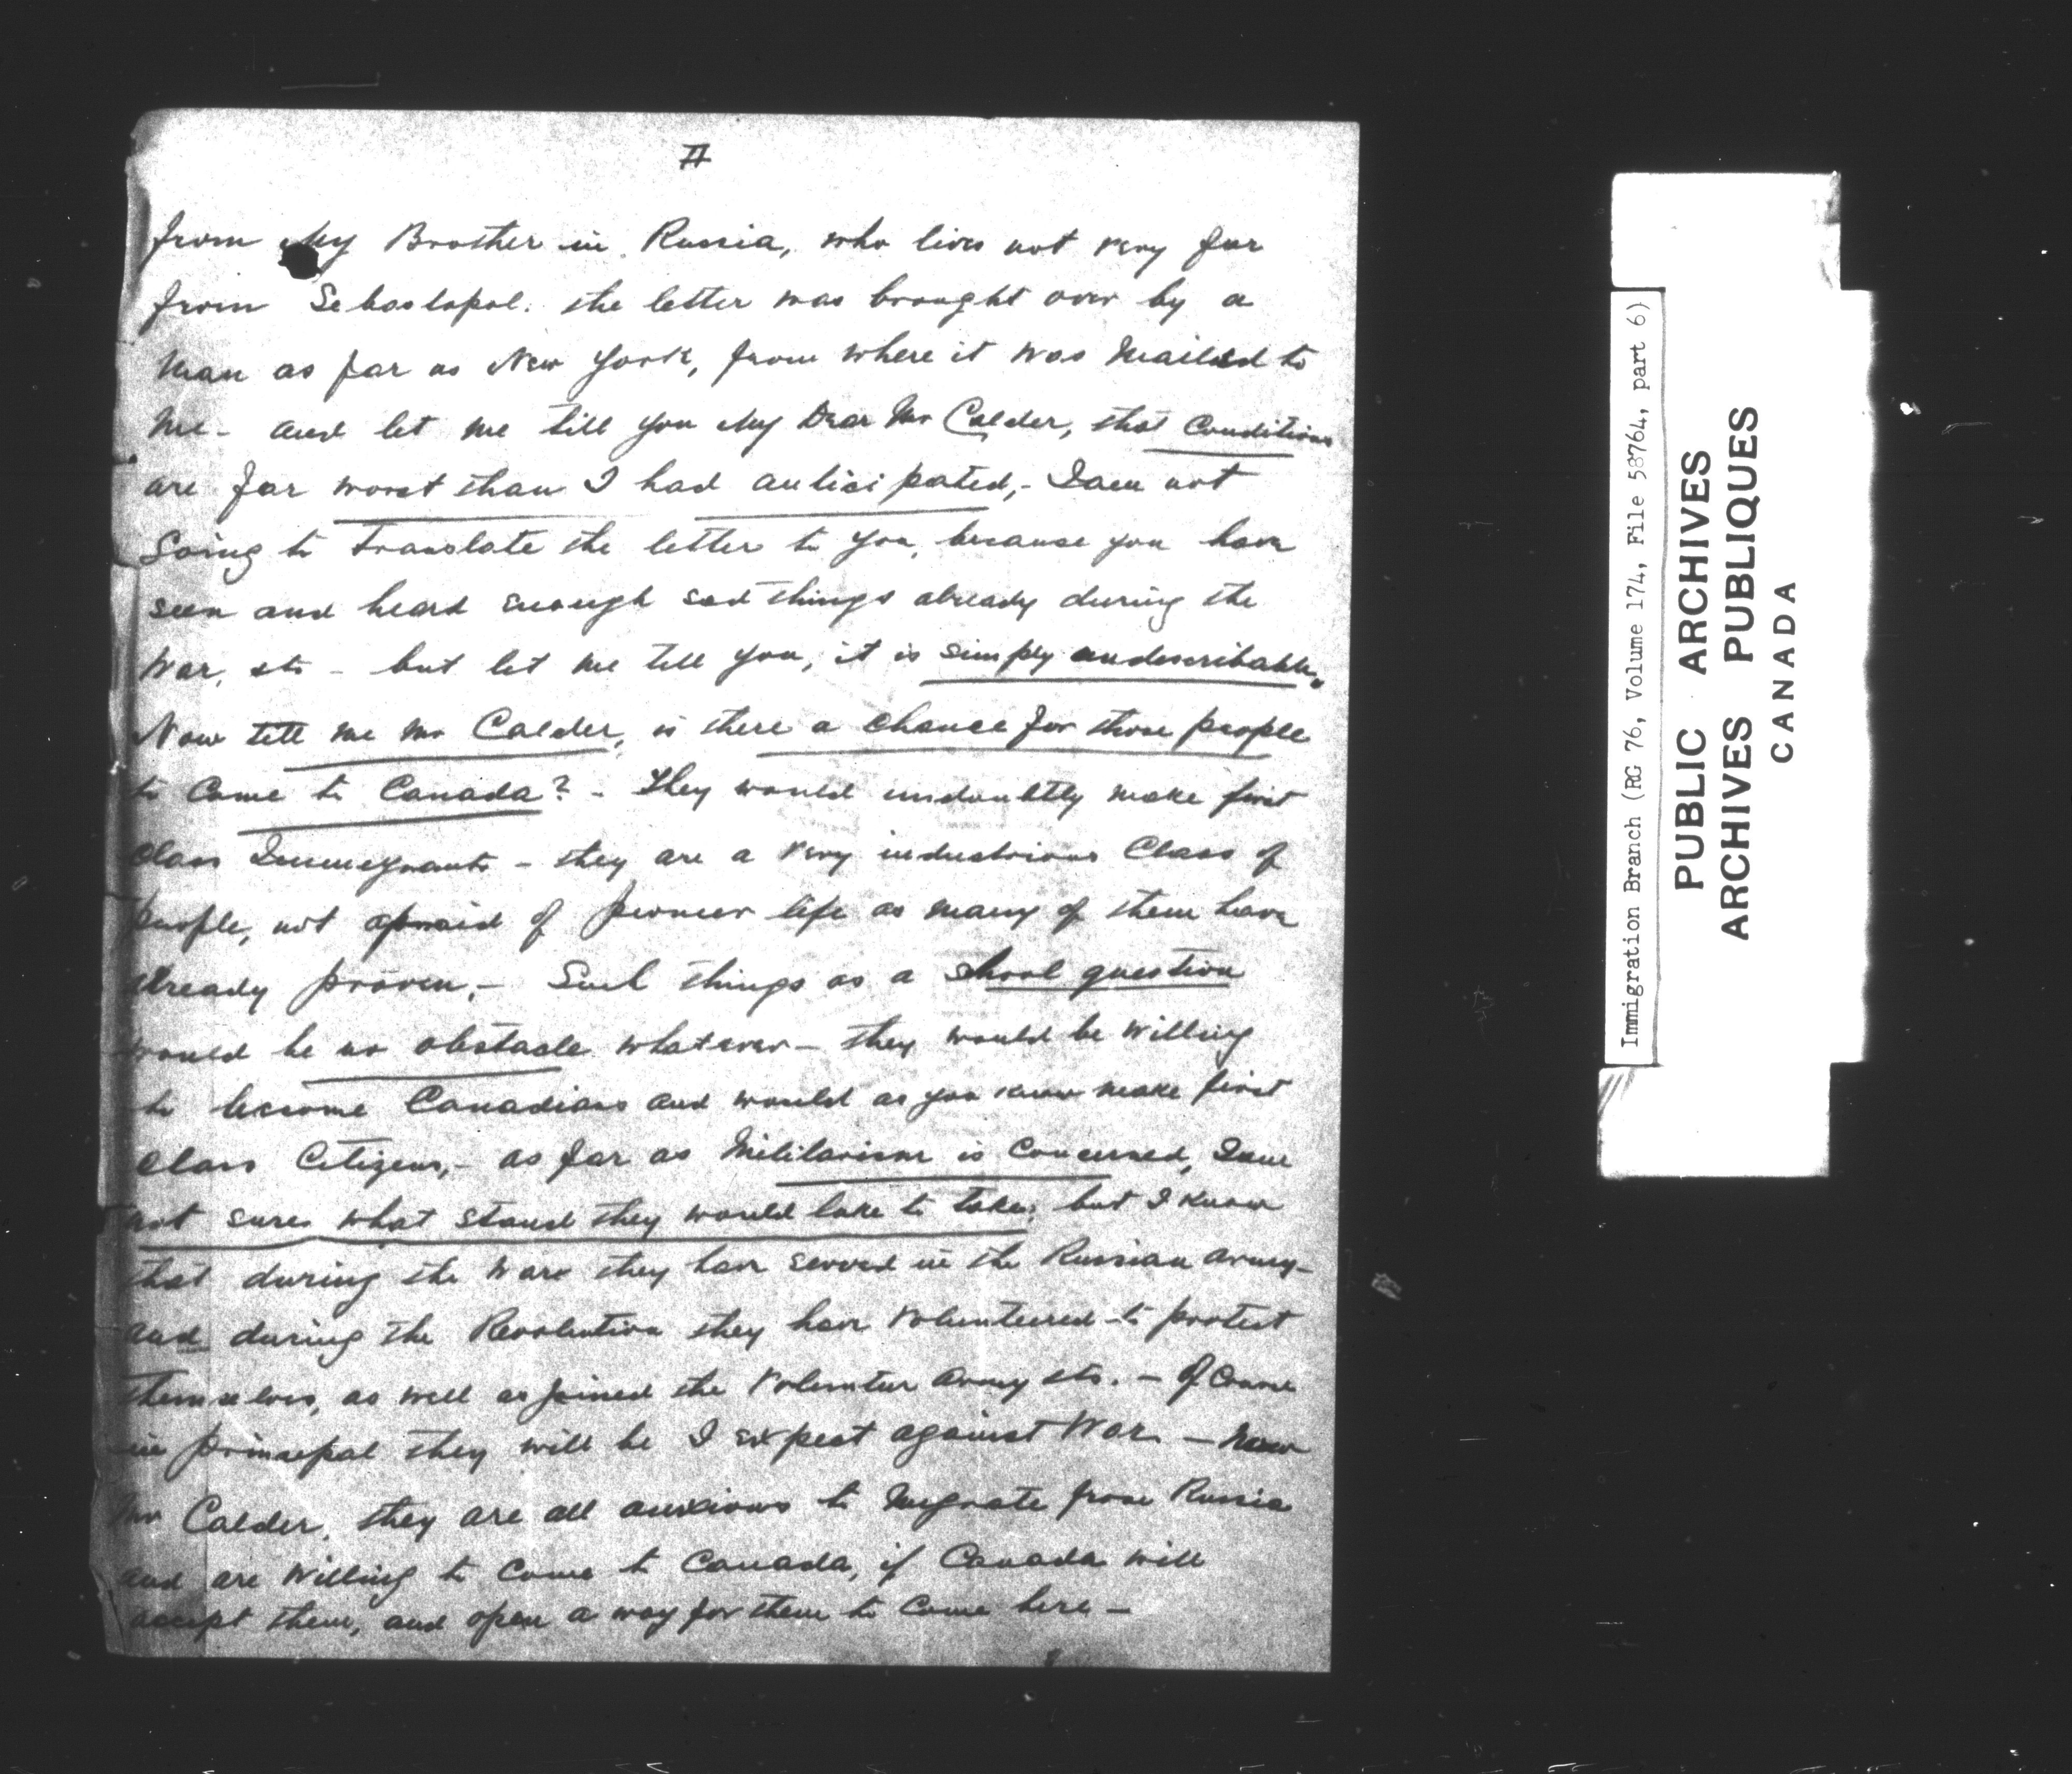 II
from My Brother in Russia, who lives not very far
from Sebastopol. the letter was brought over by a
Man as far as New York, from where it was Mailed to
Me - and let me till you My Dear Mr Calder, that Conditions
are far worst than I had anticipated, - I am not
Going to translate the letter to you, because you have
seen and heard enough sad things already during the
War, etc - but let me tell you, it is simply undescribable.
Now tell me Mr Calder, is there a chance for those people
to Come to Canada? - They would undoubtly make first
Class Immegrants - they are a very industrious Class of
People, not afraid of pioneer life as many of them have
already proven. - Such things as a shool question
would be no obstacle whatever - they would be willing
to become Canadians and would as you know make first
Class Citizens, - as far as Militarism is Concerned, I am
not sure what stand they would like to take; but I know
that during the War they have served in the Russian army -
and during the Revolution they have volunteered to protect
themselves, as well as joined the Voluntur Army etc. - Of Course
in prinsepal they will be I expect against War - Now
Mr Calder, they are all anxious to Megrate from Russia
and are Willing to Come to Canada, if Canada will
accept them, and open a way for them to Come here -
Immigration Branch (RG 76, Volume 174, File 58764, part 6)
PUBLIC ARCHIVES
ARCHIVES PUBLIQUES
CANADA